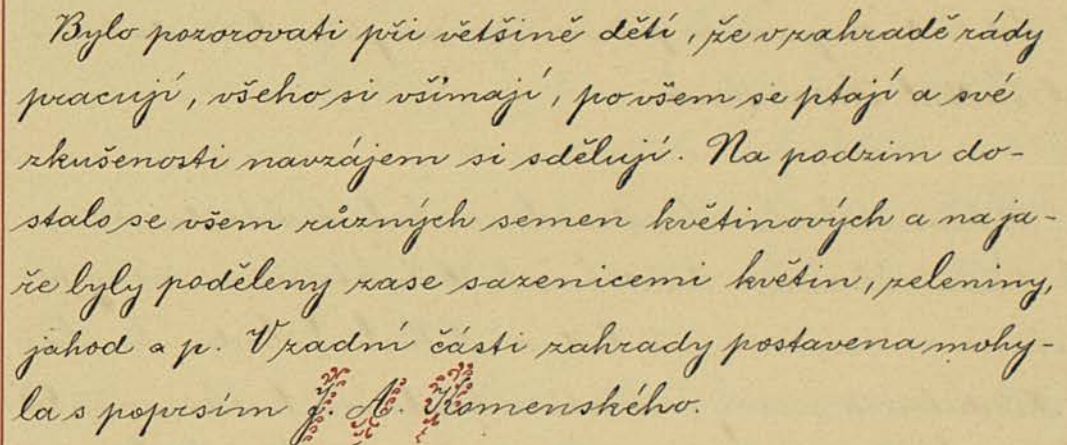 Bylo pozorovati při většině dětí, že v zahradě rády
pracují, všeho si všímají, po všem se ptají a své
zkušenosti navzájem si sdělují. Na podzim do-
stalo se všem různých semen květinových a na ja-
ře byly poděleny zase sazenicemi květin, zeleniny,
jahod a p. V zadní části zahrady postavena mohy-
la s poprsím J. A. Komenského.